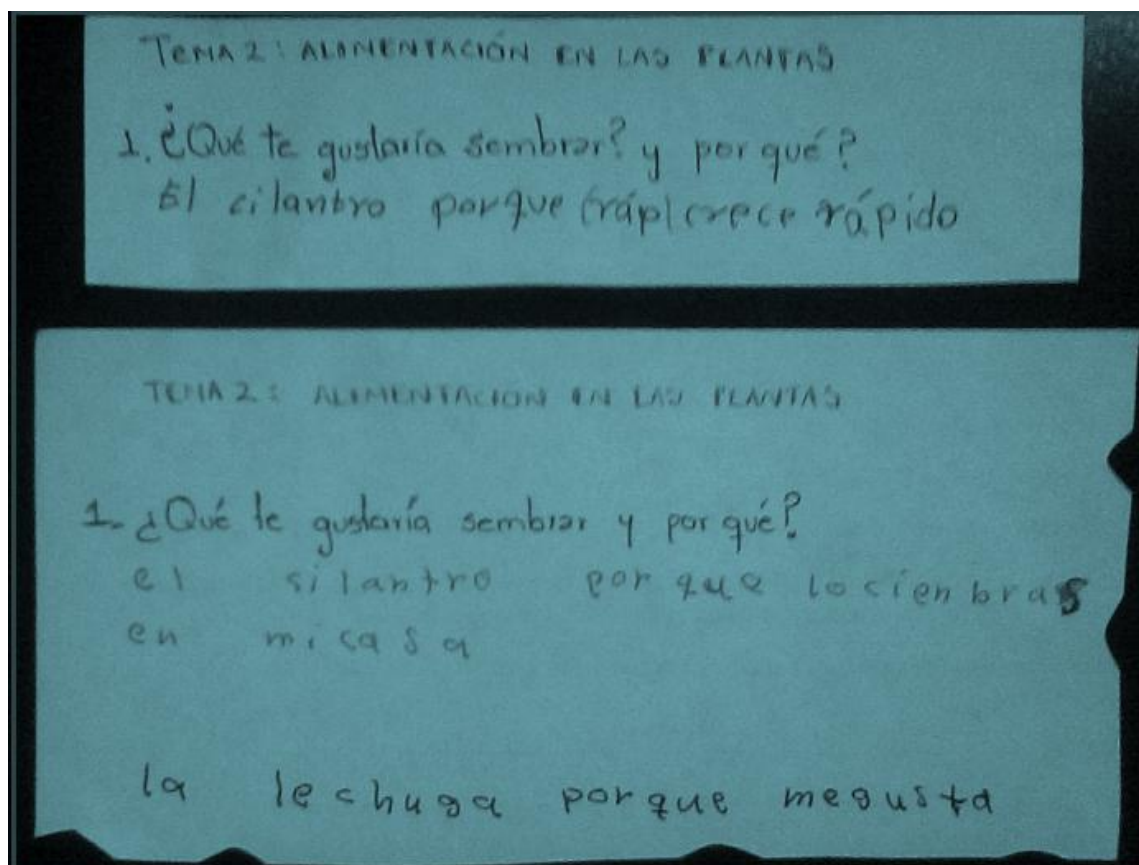 TEMA 2: ALIMENTACIÓN EN LAS PLANTAS
1. ¿Qué te gustaría sembrar? y por qué?
El cilantro porque (ráp( crece rápido
TEMA 2: ALIMENTACION EN LAS PLANTAS
1- ¿Qué te gustaría sembrar y por qué?
el silantro por que lo cienbras
en mi casa
la lechuga porque megusta